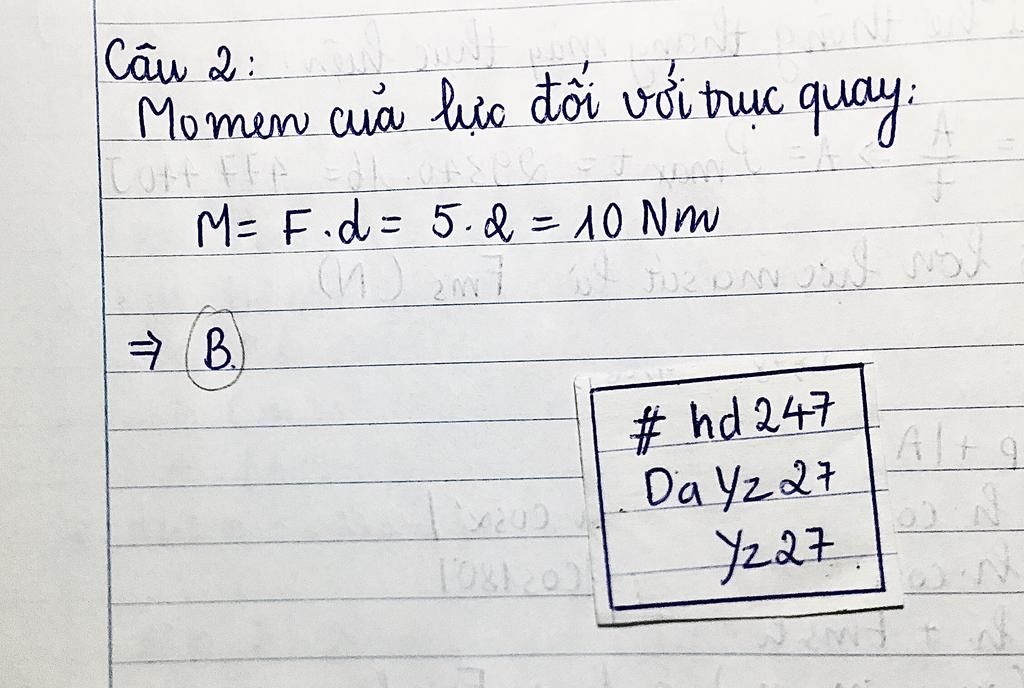 Câu 2:
Momen của lực đối với trục quay:
M = F.d = 5.2 = 10 Nm
⇒ B.
# hd247
Da Yz27
Yz27